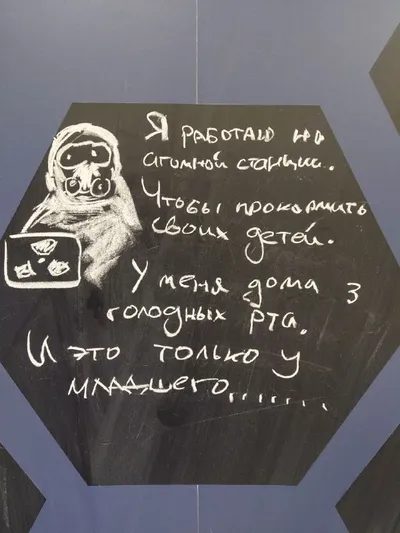 Я работаю на
атомной станции.
Чтобы прокормить
своих детей.
У меня дома 3
голодных рта.
И это только у
младшего........